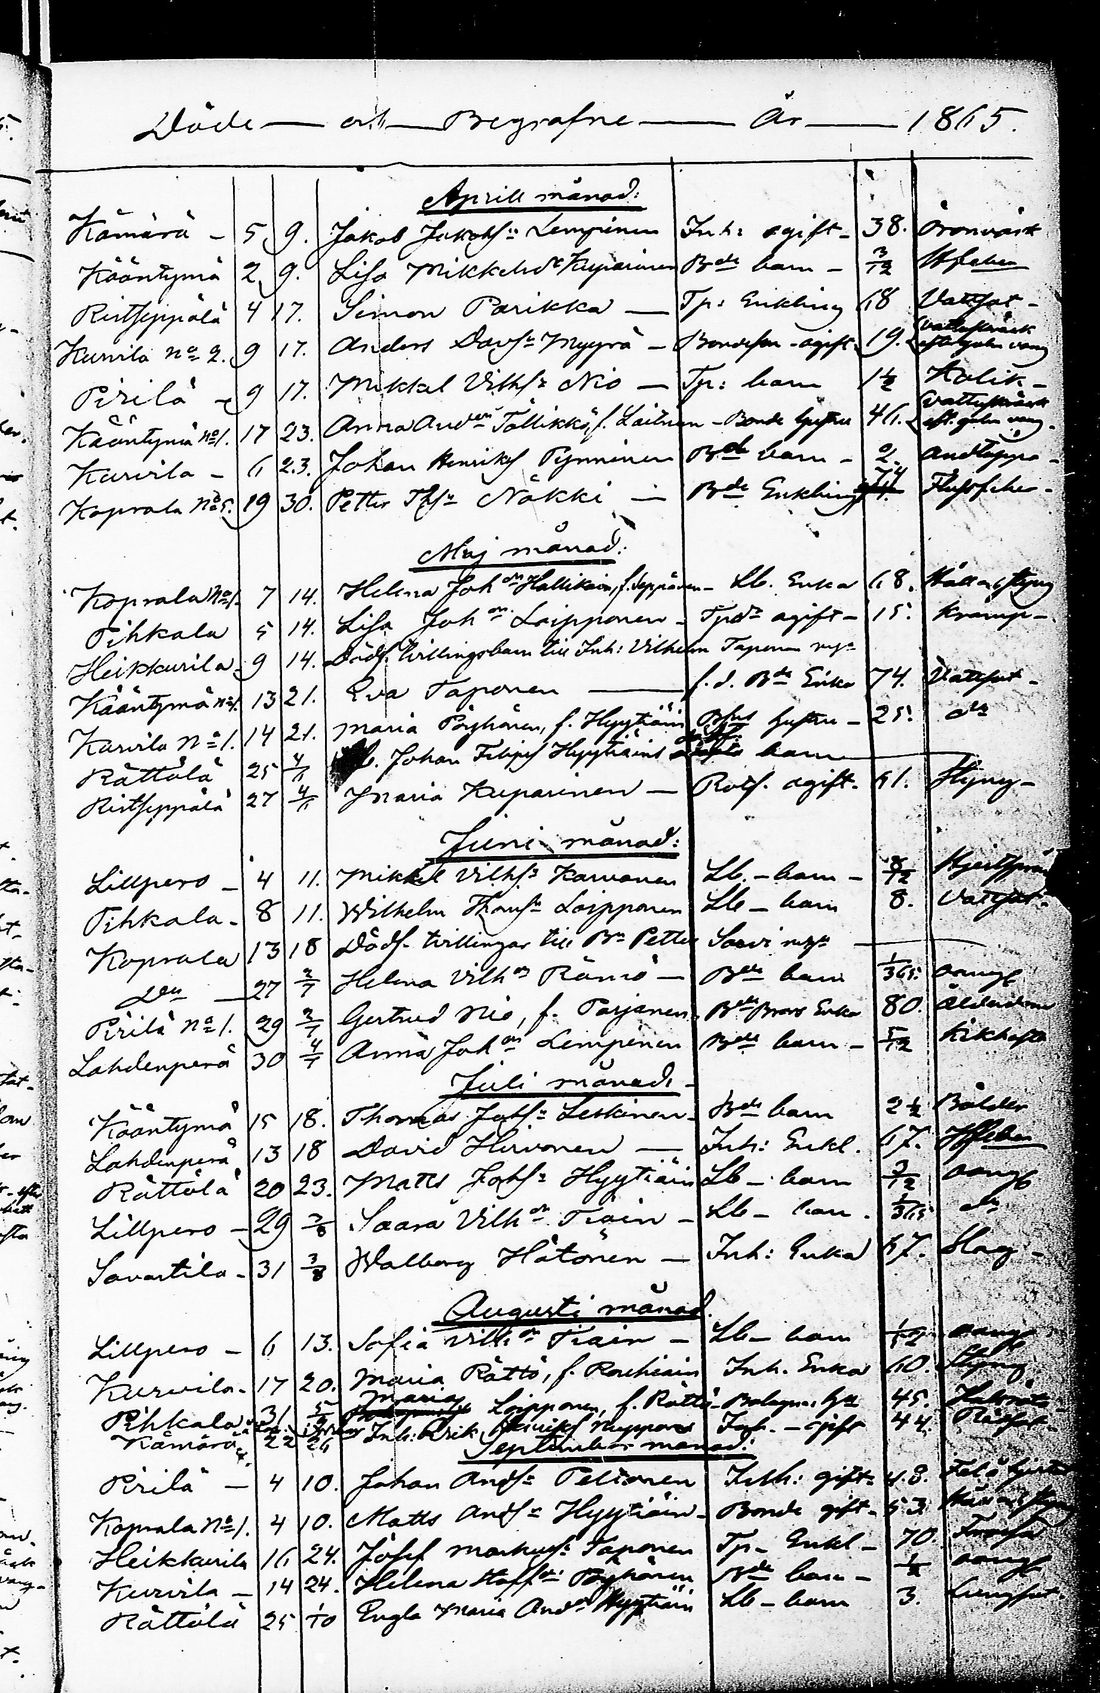 Döde — och — Begrafne — År — 1865.
Aprill månad:
Kämärä – 5 9. Jakob Jakobs: Lempinen Inh: ogift – 38.
Kääntymä 2 9. Lisa Mikkelsdr Kuparinen Bde barn – 3/12
Riitseppälä 4 17. Simon Parikka — Tp: Enkling 68 Vattsot –
Kurvila No 2. 9 17. Anders Davs: Myyrä – Bondeson – ogift. 19.
Pirilä – 9 17. Mikkel Vilhs: Nio — Tp: barn 1 1/2 Kolik –
Kääntymä No 1. 17 23. Anna Andrs Töllikkö, f. Laitinen – Bonde hustru 46.
Kurvila – 6 23. Johan Henriks Pynninen Bde barn – 2. andtäppa –
Koprala No 5. 19 30. Petter Ths: Näkki — Bde Enkling 74
Maj månad:
Koprala No 1. 7 14. Helena Joh Hallikain, f. Seppänen – Lb. Enka 68. Håll o. styng
Pihkala 5 14. Lisa Joh Loipponen – Tpdr ogift – 15. kramp –
Heikkurila – 9 14. Dödf. tvillingsbarn till Inh: Vilhelm Taponen
Kääntymä No 1. 13 21. Eva Taponen — f. d. Bde Enka 74. Vattsot –
Kurvila No 1. 14 21. Maria Pöyhönen, f. Hyytiäin hustru – 25. do
Rättölä 25 4/6 Johan Filips Hyytiäins barn
Riitseppälä 27 4/6 Maria Kuparinen — Rotf. ogift. 61. Styng –
Juni månad:
Lillpero – 4 11. Mikkel Vilhs: Karvanen Lb. – barn – 8/12
Pihkala – 8 11. Wilhelm Thoms: Loipponen Lb – barn 8. Vattsot.
Koprala 13 18 Dödf. tvillingar till Bn Petter Saavi
Do — 27 2/7 Helena Vilh Rämö — Bde barn 1/365 oangf
Pirilä No 1. 29 2/7 Gertrud Nio, f. Parjanen, Bde Brors Enka 80. Ålderdom
Lahdenperä 30 4/7 Anna Joh Lempinen Bde barn – 5/12 Kikhosta
Juli månad:
Kääntymä 15 18. Thomas Johs: Leskinen – Bde barn 2 1/2 Bölder
Lahdenperä 13 18 David Hirvonen — Inh: Enkl. 67.
Rättölä 20 23. Matts Johs: Hyytiäin Lb – barn 7/12 oangf
Lillpero – 29 3/8 Saara Vilh Tiain – Lb – barn. 1/365 do
Savastila – 31 3/8 Walborg Hätönen — Inh: Enka 67. Slag –
Augusti månad.
Lillpero – 6 13. Sofia Vilh Tiain – Lb – barn 1/12 oangf
Kurvila – 17 20. Maria Rättö, f. Rachiain Inh. Enka 60. Styng
Pihkala 31 Maria Loipponen, f. Rättö – 45.
Kämärä 22 26 Inh: Erik Henriks Nupponen Inh. – ogift 44. Rödsot.
September månad:
Pirilä — 4 10. Johan Ands: Peltonen Inh: gift – 48.
Koprala No 1. 4 10. Matts Ands: Hyytiäin – Bonde gift – 53. Håll o. styng
Heikkurila 16 24. Josef Markus: Taponen Tp – Enkl – 70.
Kurvila — 14 24. Helena Pöyhönen Bde barn – oangf
Rättölä 25 1/10 Engla Maria And Hyytiäin Lb – barn 3. Lungsot.